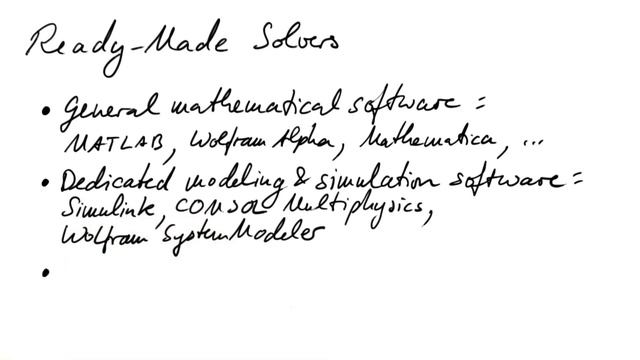 Ready-Made Solvers
• General mathematical software:
MATLAB, Wolfram Alpha, Mathematica, ...
• Dedicated modeling & simulation software:
Simulink, COMSOL Multiphysics,
Wolfram SystemModeler
•